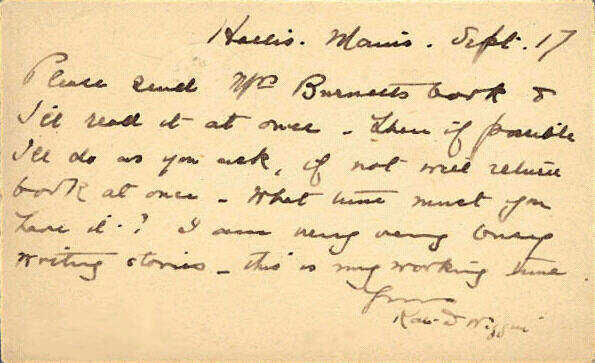 Hollis. Maine. Sept. 17
Please send Mrs Burnett's book &
I'll read it at once - Then if possible
I'll do as you ask, if not will return
book at once - What time must you
have it? I am very very busy
writing stories - this is my working time.
Yours
Kate D Wiggin